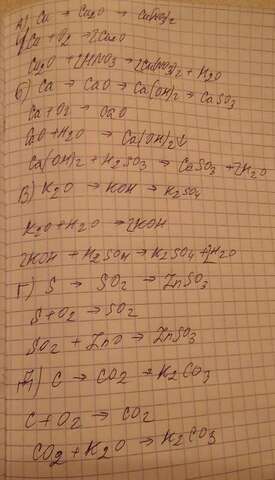 А) Cu → Cu2O → Cu(NO3)2
4Cu + O2 → 2Cu2O
Cu2O + 2HNO3 → 2Cu(NO3)2 + H2O
Б) Ca → CaO → Ca(OH)2 → CaSO3
Ca + O2 → CaO
CaO + H2O → Ca(OH)2↓
Ca(OH)2 + H2SO3 → CaSO3 + 2H2O
В) K2O → KOH → K2SO4
K2O + H2O → 2KOH
2KOH + H2SO4 → K2SO4 + 2H2O
Г) S → SO2 → ZnSO3
S + O2 → SO2
SO2 + ZnO → ZnSO3
Д) C → CO2 → K2CO3
C + O2 → CO2
CO2 + K2O → K2CO3